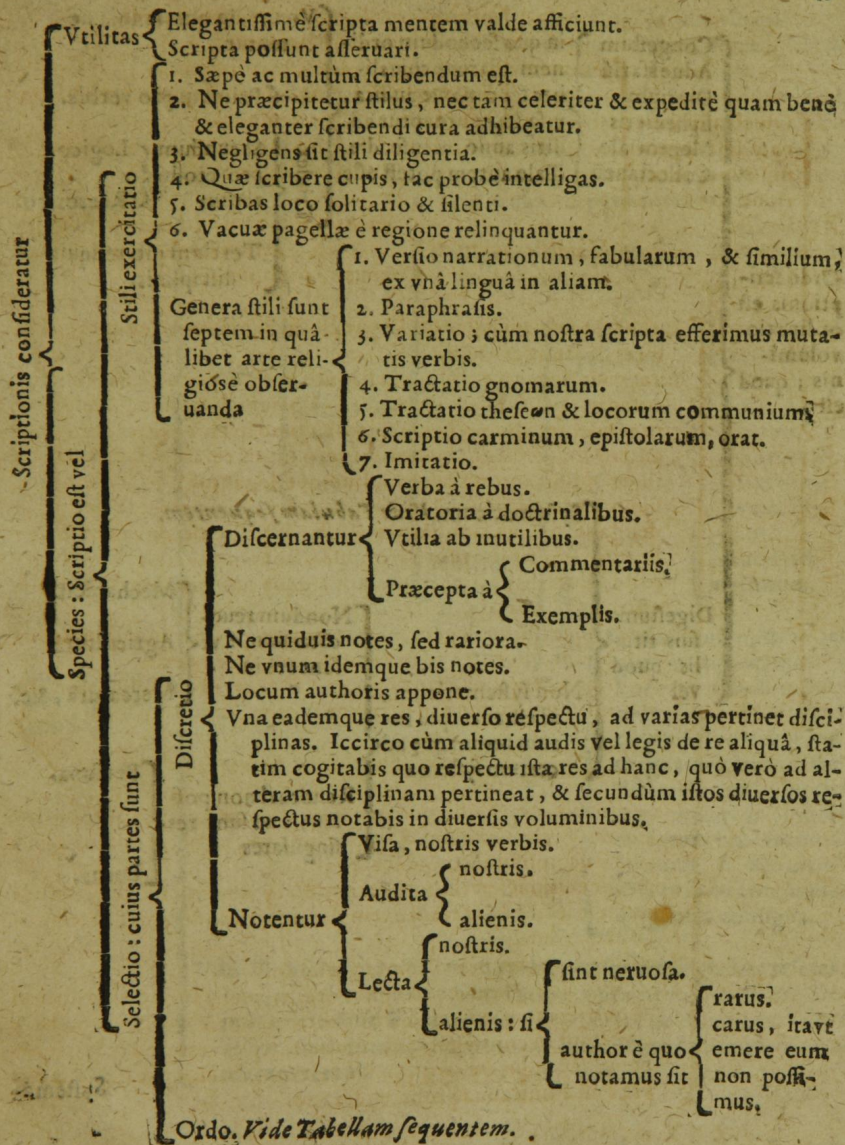 Scriptionis consideratur
Vtilitas
Elegantissimè scripta mentem valde afficiunt.
Scripta possunt asseruari.
Species: Scriptio est vel
Stili exercitatio
1. Sæpè ac multùm scribendum est.
2. Ne præcipitetur stilus, nec tam celeriter & expeditè quam benè
& eleganter scribendi cura adhibeatur.
3. Negligens sit stili diligentia.
4. Quæ scribere cupis, fac probè intelligas.
5. Scribas loco solitario & silenti.
6. Vacuæ pagellæ è regione relinquantur.
Genera stili sunt
septem in quâ-
libet arte reli-
giosè obser-
uanda
1. Versio narrationum, fabularum, & similium,
ex vnâ linguâ in aliam.
2. Paraphrasis.
3. Variatio; cùm nostra scripta efferimus muta-
tis verbis.
4. Tractatio gnomarum.
5. Tractatio theseωn & locorum communium,
6. Scriptio carminum, epistolarum, orat.
7. Imitatio.
Selectio: cuius partes sunt
Discretio
Discernantur
Verba à rebus.
Oratoria à doctrinalibus.
Vtilia ab inutilibus.
Præcepta à
Commentariis.
Exemplis.
Ne quiduis notes, sed rariora.
Ne vnum idemque bis notes.
Locum authoris appone.
Vna eademque res, diuerso respectu, ad varias pertinet disci-
plinas. Iccirco cùm aliquid audis vel legis de re aliquâ, sta-
tim cogitabis quo respectu ista res ad hanc, quò verò ad al-
teram disciplinam pertineat, & secundùm istos diuersos re-
spectus notabis in diuersis voluminibus.
Notentur
Visa, nostris verbis.
Audita
nostris.
alienis.
Lecta
nostris.
alienis: si
sint neruosa.
author è quo
notamus sit
rarus.
carus, itavt
emere eum
non possi-
mus.
Ordo. Vide Tabellam sequentem.